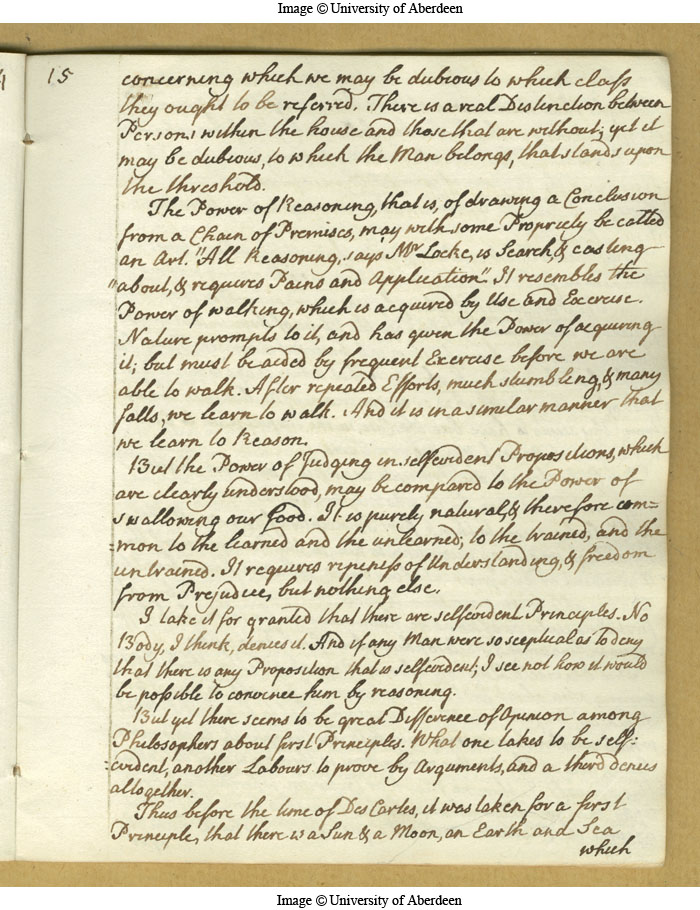 Image © University of Aberdeen
15
concerning which we may be dubious to which class
they ought to be referred. There is a real Distinction between
Persons within the house and those that are without; yet it
may be dubious, to which the Man belongs, that stands upon
the threshold.
The Power of Reasoning, that is, of drawing a Conclusion
from a Chain of Premises, may with some Propriety be called
an Art. "All Reasoning, says Mr Locke, is Search, & casting
"about, & requires Pains and Application". It resembles the
Power of walking, which is acquired by Use and Exercise.
Nature prompts to it, and has given the Power of acquiring
it; but must be aided by frequent Exercise before we are
able to walk. After repeated Efforts, much stumbling, & many
falls, we learn to walk. And it is in a similar manner that
we learn to Reason.
But the Power of Judging in selfevident Propositions, which
are clearly understood, may be compared to the Power of
swallowing our food. It is purely, natural, & therefore com=
=mon to the learned and the unlearned; to the trained, and the
untrained. It requires ripeness of Understanding, & freedom
from Prejudice, but nothing else.
I take it for granted that there are selfevident Principles. No
Body, I think, denies it. And if any Man were so sceptual as to deny
that there is any Proposition that is selfevident; I see not how it would
be possible to convince him by reasoning.
But yet there seems to be great Difference of Opinion among
Philosophers about first Principles. What one takes to be self=
=evident, another Labours to prove by Arguments, and a third denies
altogether.
Thus before the time of Des Cartes, it was taken for a first
Principle, that there is a Sun & a Moon, an Earth and Sea
which
Image © University of Aberdeen